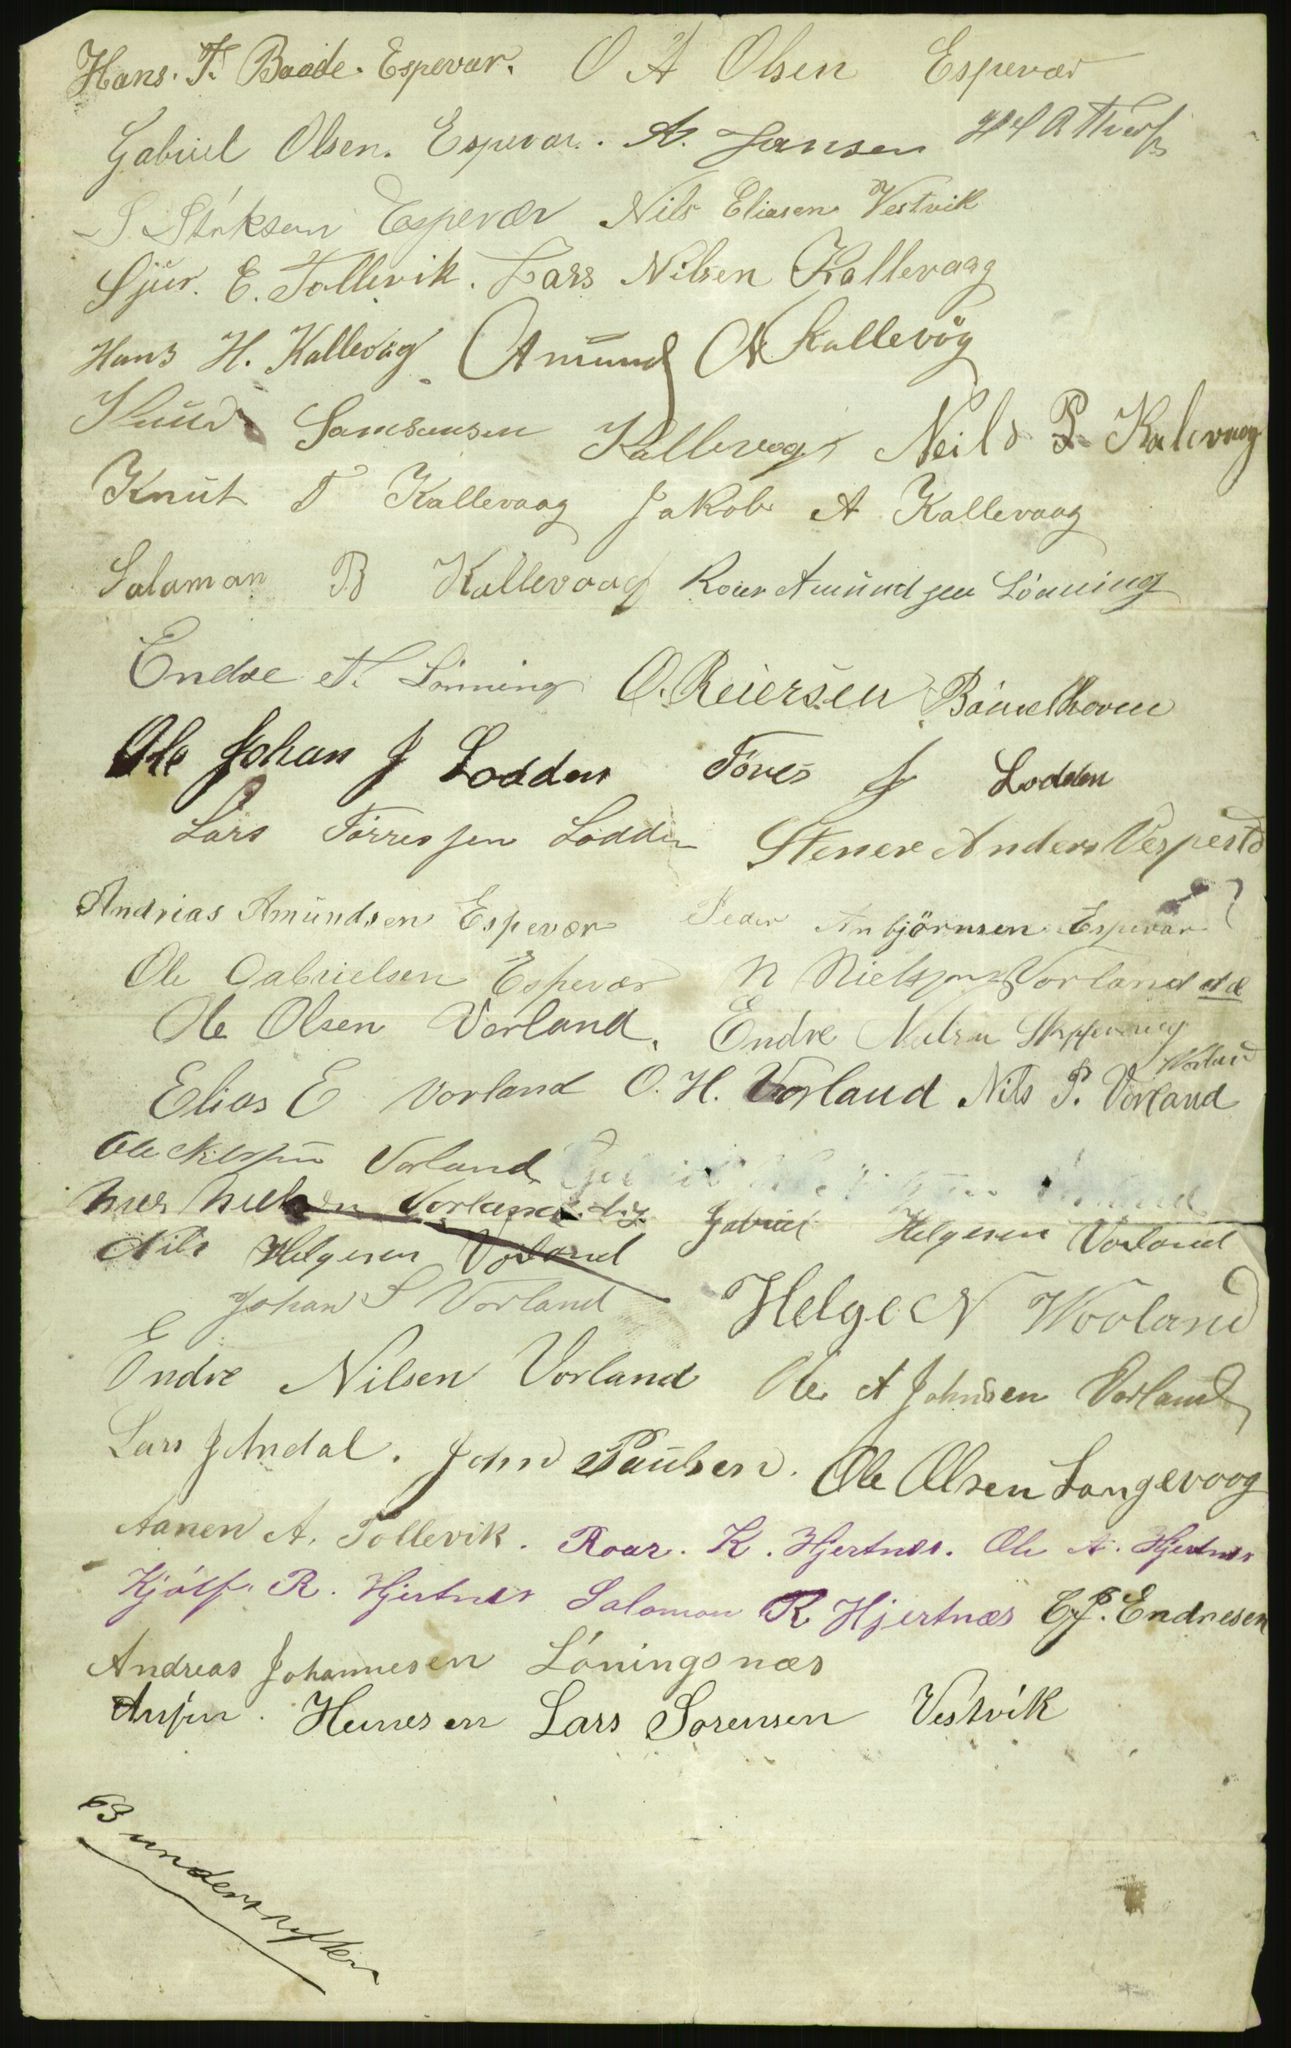 Hans. T. Baade. Espevær. O A Olsen Espevær
Gabriel Olsen. Espevær. A. Jansen
S Espevær Nils Eliasen Vestvik
Sjur. E. Tollevik. Lars Nilsen Kallevaag
Hans H. Kallevåg Amund A Kallevåg
Knud Samsonsen Kallevag Neils P. Kalevaag
Knut T Kallevaag Jakob A Kallevaag
Salamon B Kallevaag Roar Amundsen Lönning
Endre A. Lönning O. Reiersen Bömelhoven
Ole Johan J Lodden Töres J Lodden
Lars Törressen Lodden Stener Anders Vespestd
Andrias Amundsen Espevær Peder Anbjörnsen Espevær
Ole Gabrielsen Espevær N Nielssen Vorland
Ole Olsen Vorland. Endre Nielsen
Vorland
Elias E Vorland O. H. Vorland Nils P. Vorland
Ole Nilssen Vorland
Nils Nielsen Vorland
Nils Helgesen Vorland Gabriel Helgesen Vorland
Johan S Vorland Helge N Worland
Endre Nilsen Vorland Ole A Johnsen Vorland
Lars J Andal. John Paulsen. Ole Olsen Langevaag
Aanen A. Tollevik. Roar. K. Hjertnes. Ole A. Hjertnes
Kjölf. R. Hjertnes Salomon R Hjertnæs E. J. Endresen
Andreas Johannesen Löningsnæs
Anfin. Hennesen Lars Sorensen Vestvik
63 underskrifter